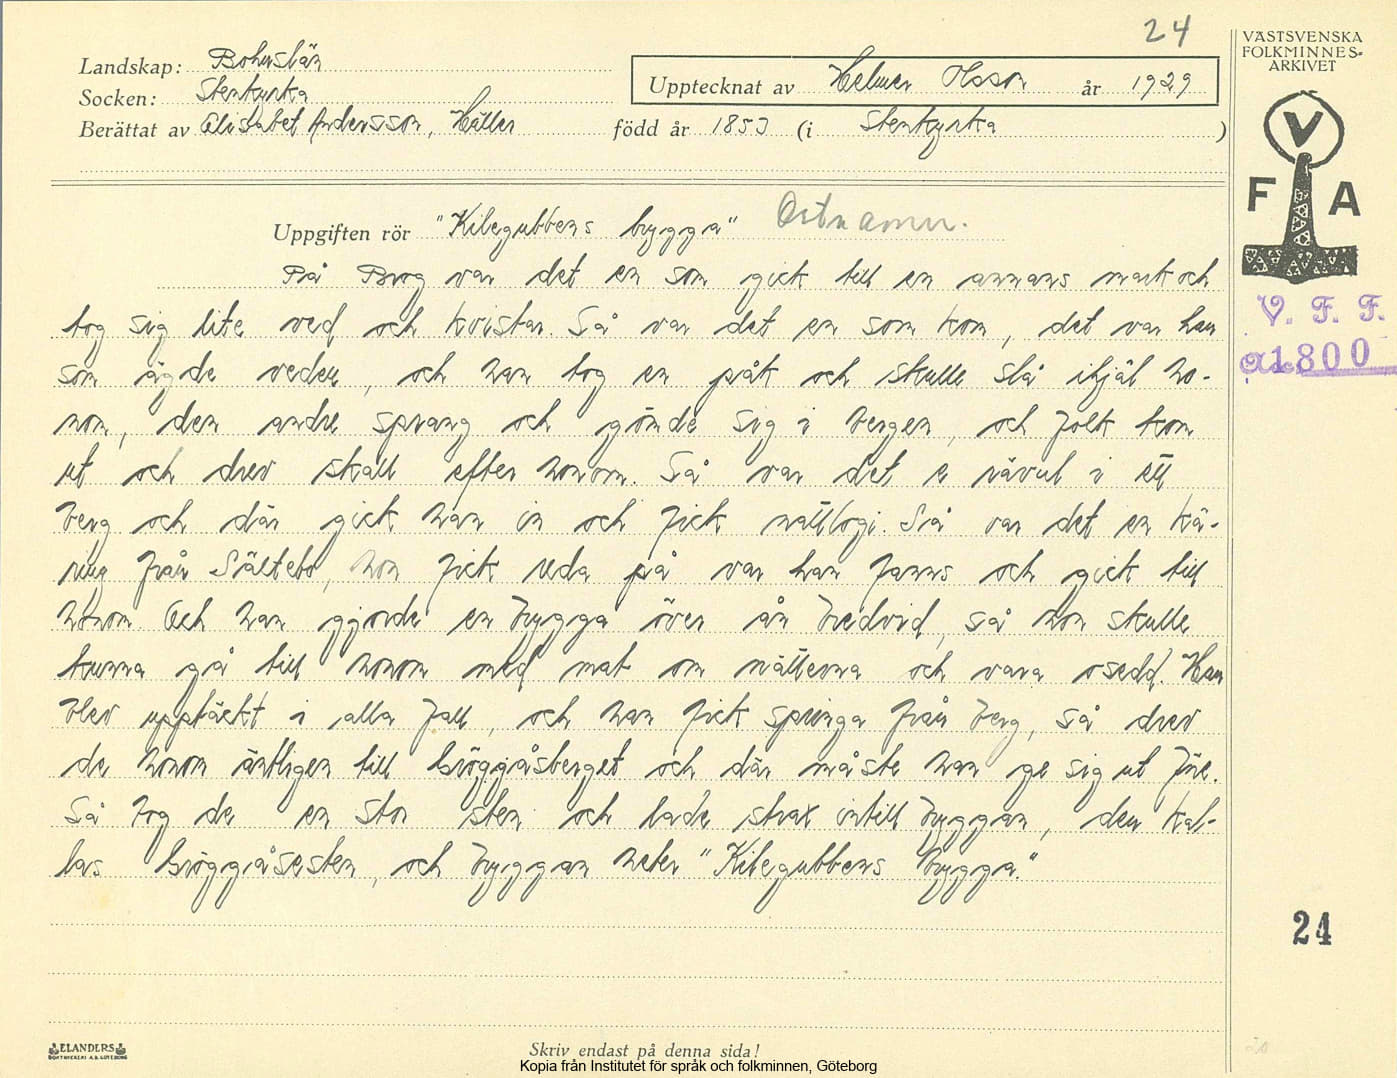 24
VÄSTSVENSKA
FOLKMINNES-
ARKIVET
Landskap: Bohuslän
Socken: Stenkyrka
Upptecknat av Helmer Olsson år 1929
Berättat av Elisabet Andersson, Häller född år 1853 (i Stenkyrka )
V
F A
Uppgiften rör "Kilegubbens brygga" Ortnamn.
På Borg var det en som gick till en annans mark och
tog sig lite ved och kvistar. Så var det en som kom, det var han
som ägde veden, och han tog en påk och skulle slå ihjäl ho-
nom, den andre sprang och gömde sig i bergen, och folk kom
ut och drev skall efter honom. Så var det e rävul i ett
berg och där gick han in och fick nattlogi. Så var det en kä-
ring från Sältebo, hon fick reda på var han fanns och gick till
honom. Och han gjorde en brygga över ån bredvid, så hon skulle
kunna gå till honom med mat om nätterna och vara osedd. Han
blev upptäckt i alla fall, och han fick springa från berg, så drev
de honom äntligen till Gröggåsberget och där måste han ge sig ut före.
Så tog de en stor sten och lade strax intill bryggan, den kal-
las Gröggåsesten, och bryggan heter "Kilegubbens brygga."
V. F. F.
1800
24
ELANDERS
BOKTRYCKERI A.B. GÖTEBORG
Skriv endast på denna sida!
Kopia från Institutet för språk och folkminnen, Göteborg